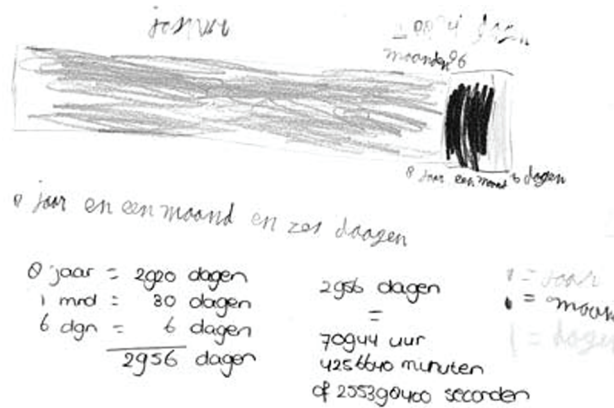 maanden
8 jaar een maand 6 dagen
8 jaar en een maand en zes daagen
8 jaar = 2920 dagen
1 mnd = 30 dagen
6 dgn = 6 dagen
2956 dagen
2956 dagen
=
70944 uur
4256640 minuten
of 255398400 seconden
= jaar
= maan
= dagen